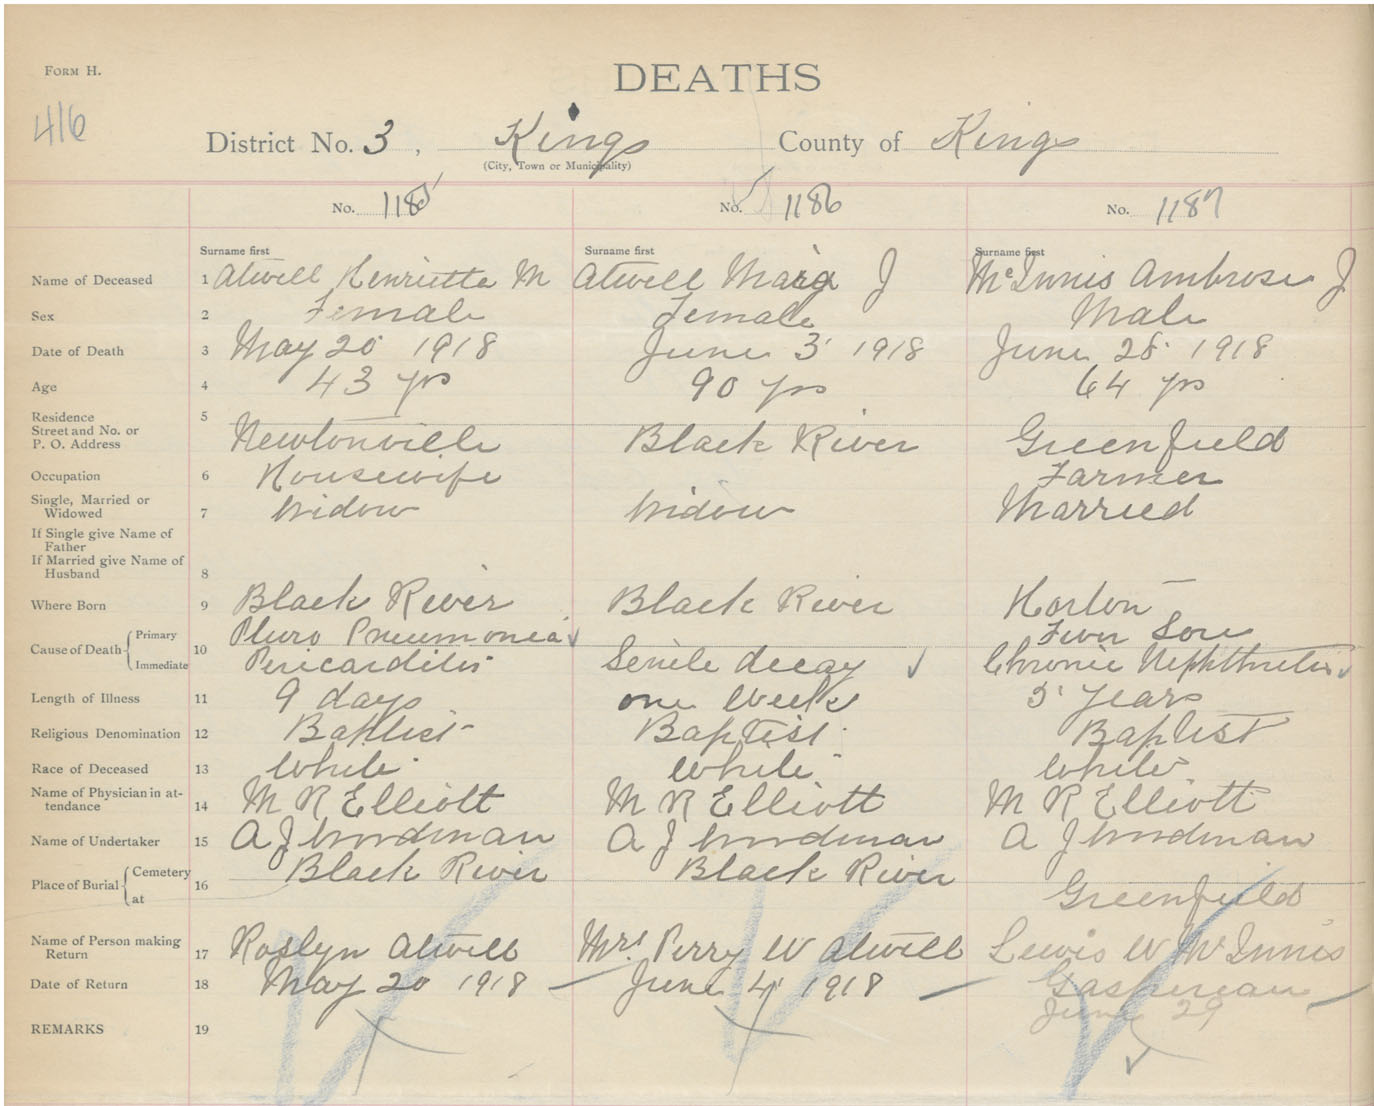 FORM H.
DEATHS
416
District No. 3, Kings County of Kings
(City, Town or Municipality)
No. 1185 No. 1186 No. 1187
Surname first Surname first Surname first
Name of Deceased 1 Atwell Henrietta M Atwell Maria J McInnis Ambrose J
Sex 2 Female Female Male
Date of Death 3 May 20 1918 June 3 1918 June 28 1918
Age 4 43 yrs 90 yrs 64 yrs
Residence 5
Street and No. or
P. O. Address Newtonville Black River Greenfield
Occupation 6 Housewife Farmer
Single, Married or
Widowed 7 Widow Widow Married
If Single give Name of
Father
If Married give Name of
Husband 8
Where Born 9 Black River Black River Horton
Cause of Death 10 Primary Pluro Pneumonia Fever Sore
Immediate Pericarditis Senile decay Chronic
Length of Illness 11 9 days one week 5 years
Religious Denomination 12 Baptist Baptist Baptist
Race of Deceased 13 White White White
Name of Physician in at-
tendance 14 M R Elliott M R Elliott M R Elliott
Name of Undertaker 15 A J Woodman A J Woodman A J Woodman
Place of Burial 16 Cemetery Black River Black River
at Greenfield
Name of Person making
Return 17 Roslyn Atwell Mrs. Perry W Atwell Lewis W McInnis
Date of Return 18 May 20 1918 June 4 1918 Gaspereau
June 29
REMARKS 19